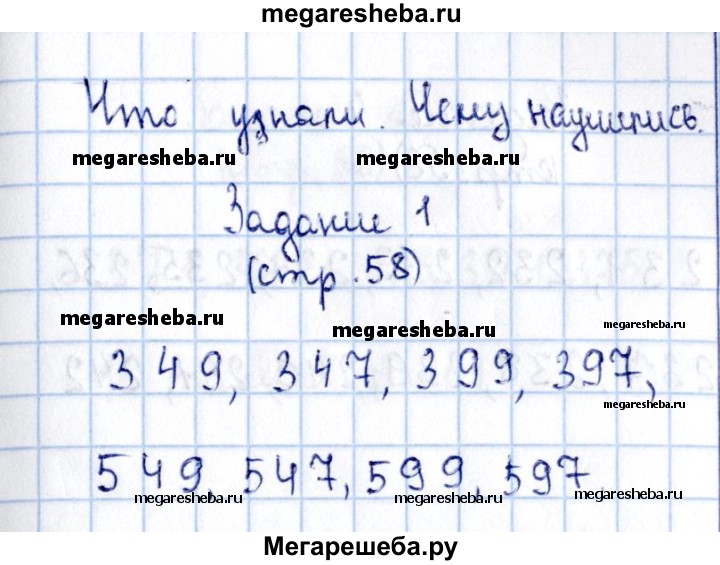 megaresheba.ru
Что узнали. Чему научились.
megaresheba.ru megaresheba.ru
Задание 1
(стр. 58)
megaresheba.ru megaresheba.ru megaresheba.ru
349, 347, 399, 397,
megaresheba.ru
549, 547, 599, 597
megaresheba.ru megaresheba.ru megaresheba.ru
Мегарешеба.ру